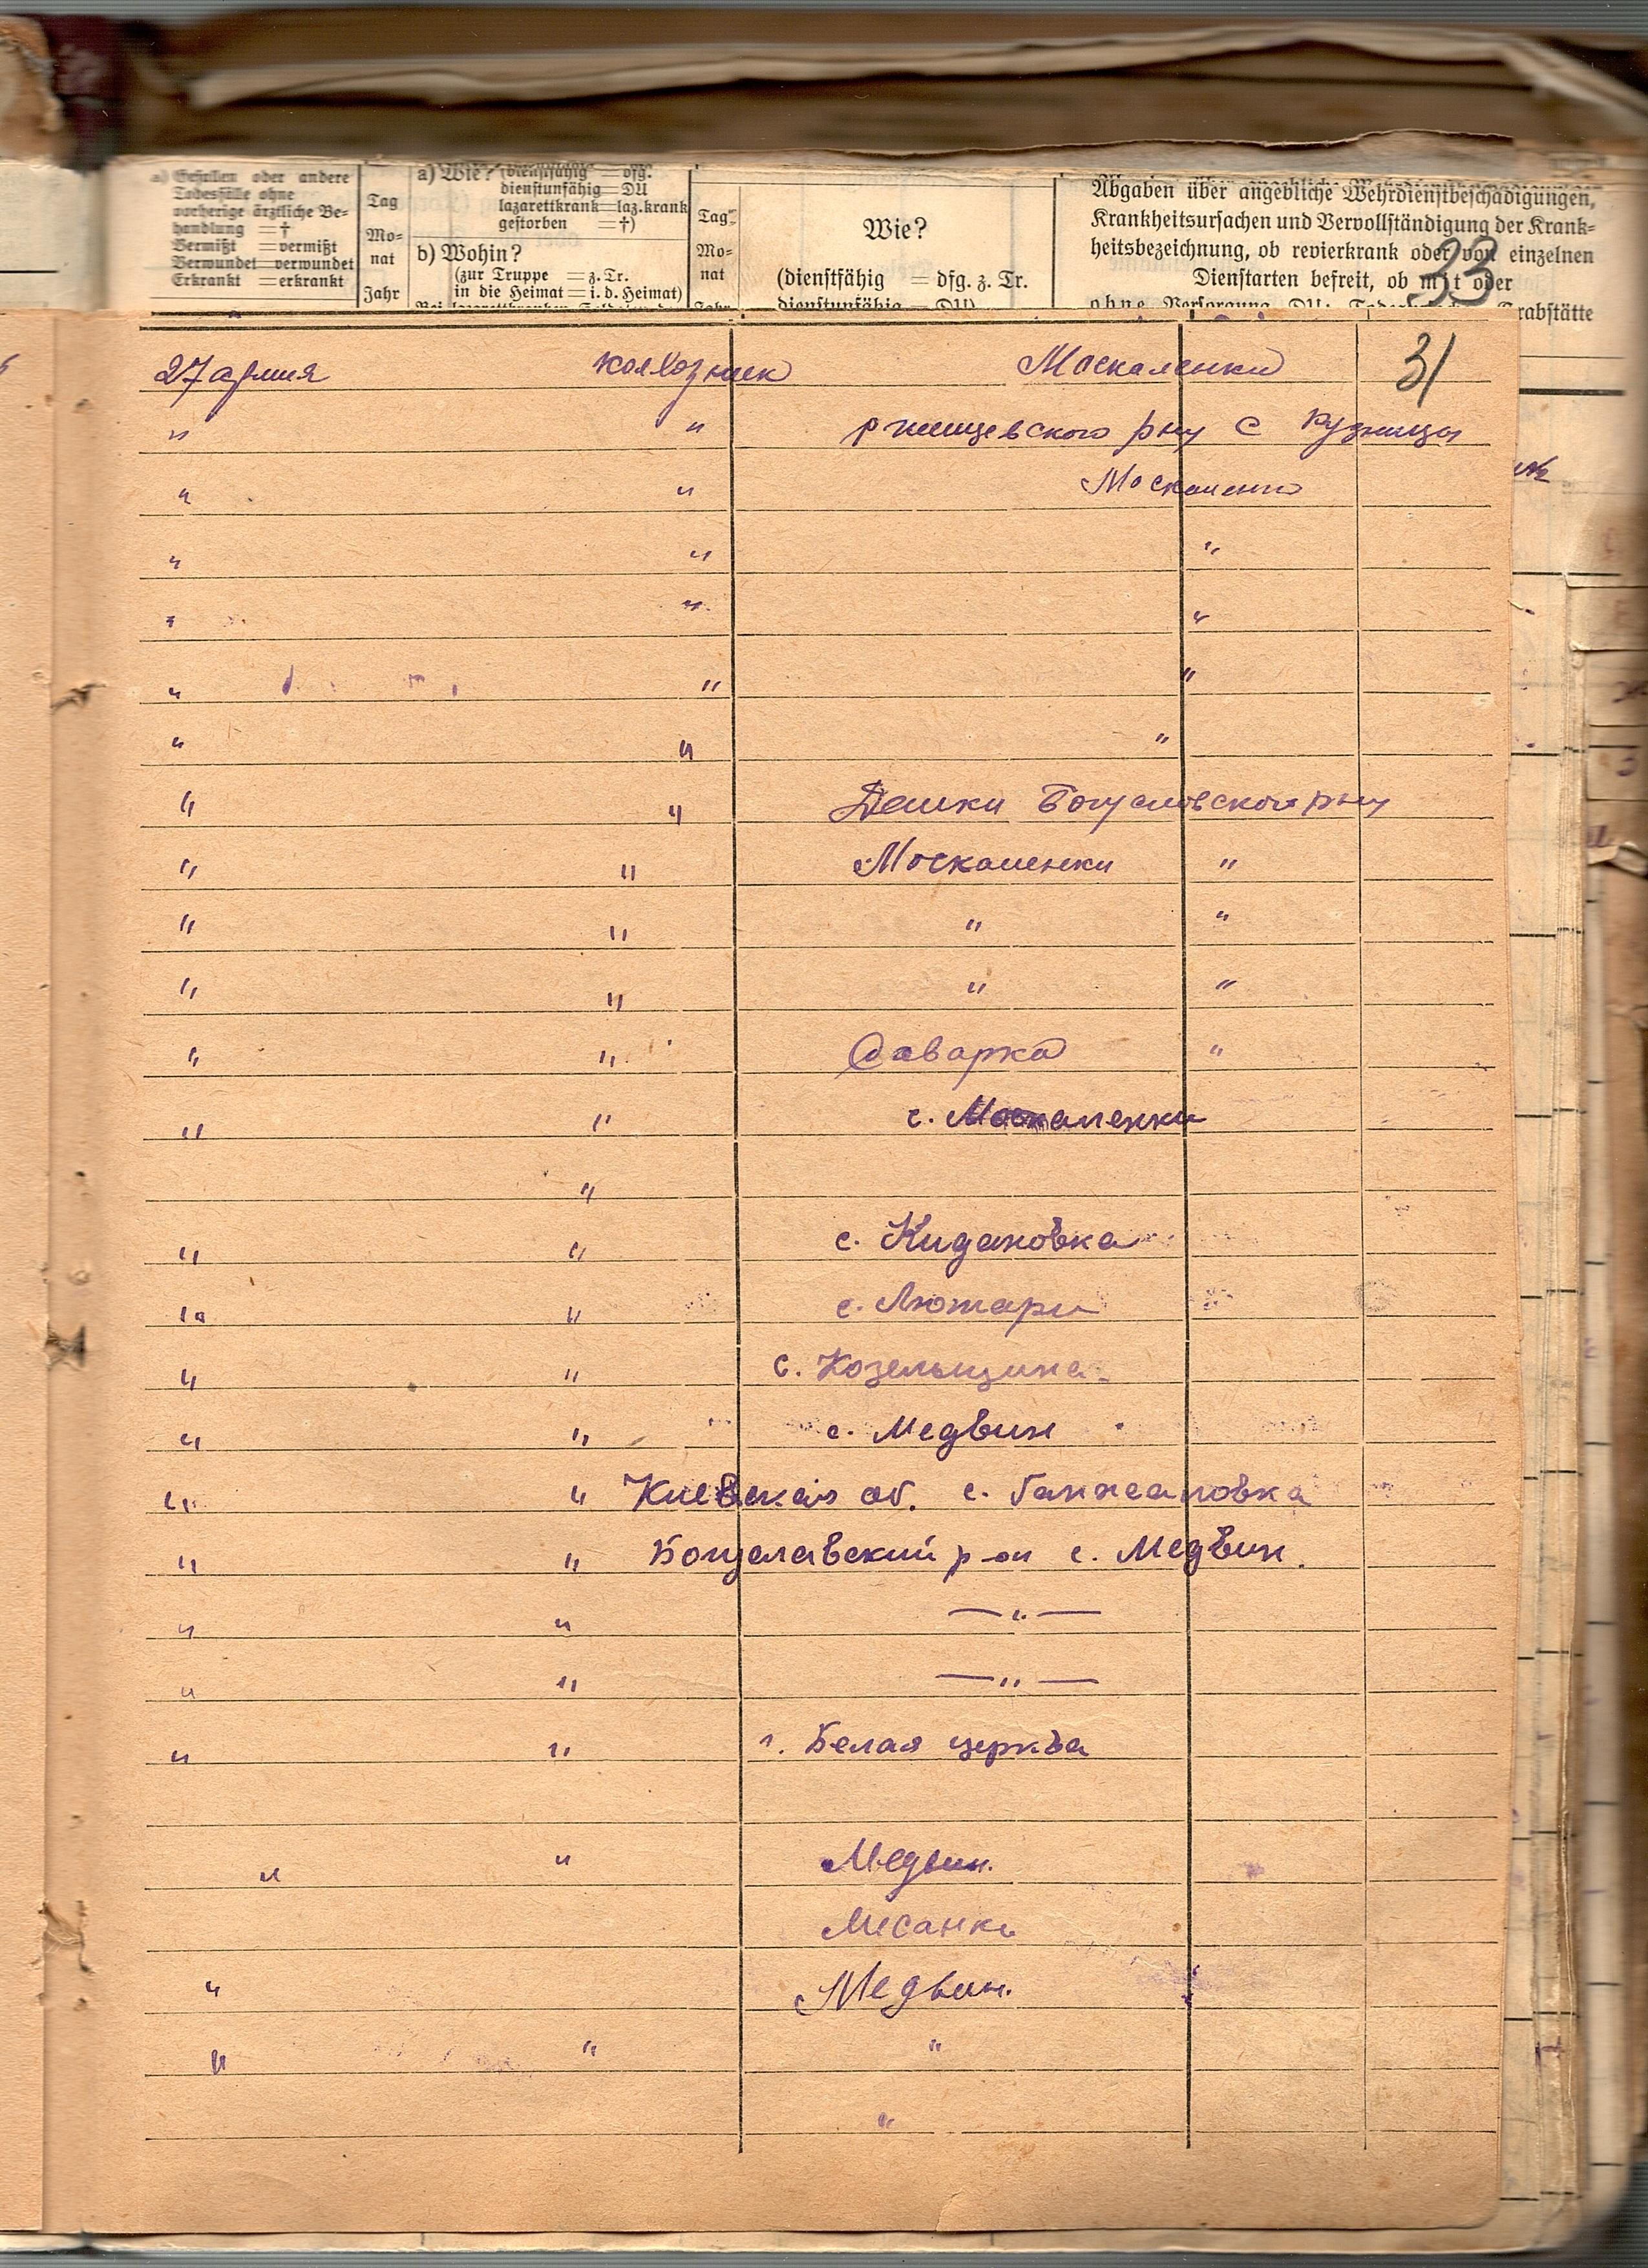 a) Gefallen oder andere
Todesfälle ohne
vorherige ärztliche Be-
handlung = †
Vermißt = vermißt
Verwundet = verwundet
Erkrankt = erkrankt
Tag
Mo-
nat
Jahr
a) Wie? (dienstfähig = dfg.
dienstunfähig = DU
lazarettkrank = laz.krank
gestorben = †)
b) Wohin?
(zur Truppe = z. Tr.
in die Heimat = i. d. Heimat)
Tag
Mo-
nat
Wie?
(dienstfähig = dfg. z. Tr.
dienstunfähig = DU)
Abgaben über angebliche Wehrdienstbeschädigungen,
Krankheitsursachen und Vervollständigung der Krank-
heitsbezeichnung, ob revierkrank oder von einzelnen
Dienstarten befreit, ob mit oder
ohne Versorgung DU: rabstätte
33
31
27 армия колхозник Москаленки
" " ржищевского рну с Кузницы
" " Москаленки
" " "
" " "
" " "
" " "
" " Дешки Богуславского рну
" " Москаленки "
" " " "
" " " "
" " Саварка "
" " с. Москаленки
"
" " с. Кидановка
" " с. Лютари
" " с. Козельщина
" " с. Медвин
" " Киевская об. с. Ганжаловка
" " Богуславский р-он с. Медвин.
" " — " —
" " — " —
" " г. Белая церква
" " Медвин.
Мисанки
" Медвин.
" " "
"